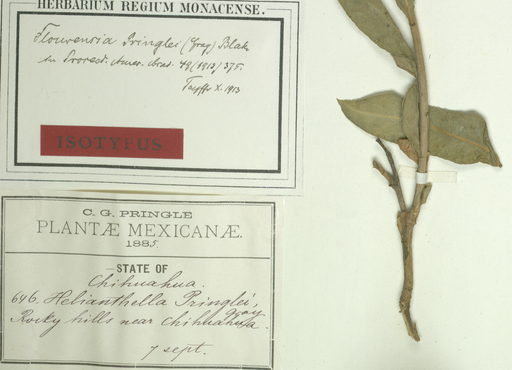 HERBARIUM REGIUM MONACENSE.
Flourensia Pringlei (Gray) Blake
in Proceed. Amer. Acad. 49 (1913) 375.
X. 1913
ISOTYPUS
C. G. PRINGLE
PLANTÆ MEXICANÆ.
1885.
STATE OF
Chihuahua.
646. Helianthella Pringlei,
Gray
Rocky hills near Chihuahua.
7 sept.